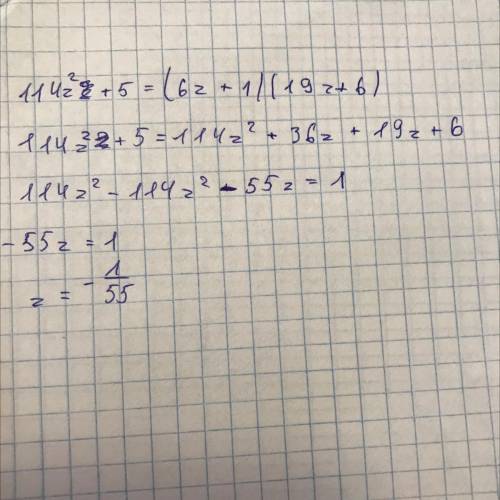 114z² + 5 = (6z + 1)(19z + 6)
114z² + 5 = 114z² + 36z + 19z + 6
114z² - 114z² - 55z = 1
- 55z = 1
z = - 1/55